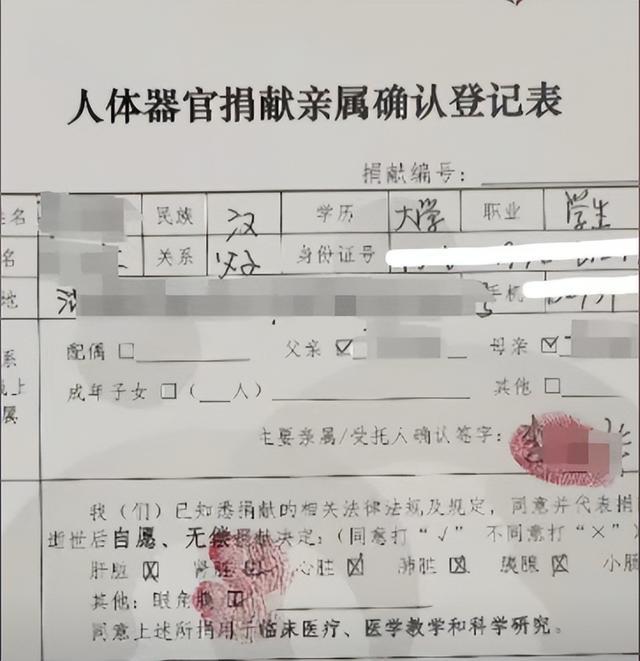 人体器官捐献亲属确认登记表
捐献编号:
姓名 民族 汉 学历 大学 职业 学生
名 关系 父子 身份证号
地 手机
系 配偶 □ 父亲 ☑ 母亲 ☑
上 成年子女 □ ( 人) 其他 □
属
主要亲属/受托人确认签字:
我(们)已知悉捐献的相关法律法规及规定,同意并代表捐
逝世后自愿、无偿捐献决定:(同意打“√” 不同意打“×”)
肝脏 ☒ 肾脏 心脏 ☒ 肺脏 ☒ 胰腺 ☒ 小肠
其他:眼角膜
同意上述所捐用于临床医疗、医学教学和科学研究。